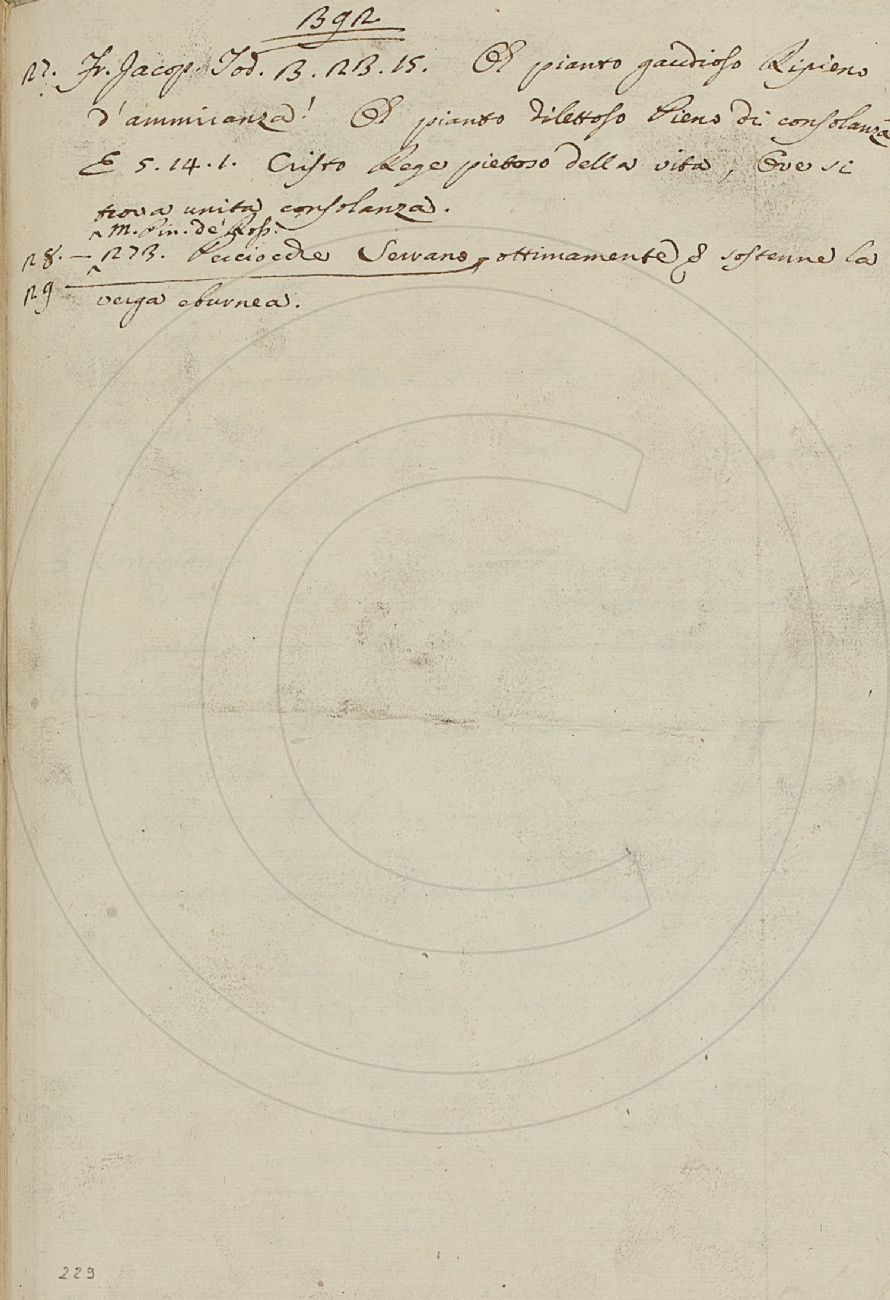 392
27. Fr. Jacop. Tod. 3. 23. 15. O pianto gaudioso Ripieno
d'ammiranza! O pianto dilettoso Pieno di consolanza
E 5. 14. 1. Cristo Rege pietoso della vita, Ove si
trova unita consolanza.
^ M. Pin. de' Ross.
28. — 273. Perciocchè Serrano, ottimamente sostenne la
29 verga eburnea.
229